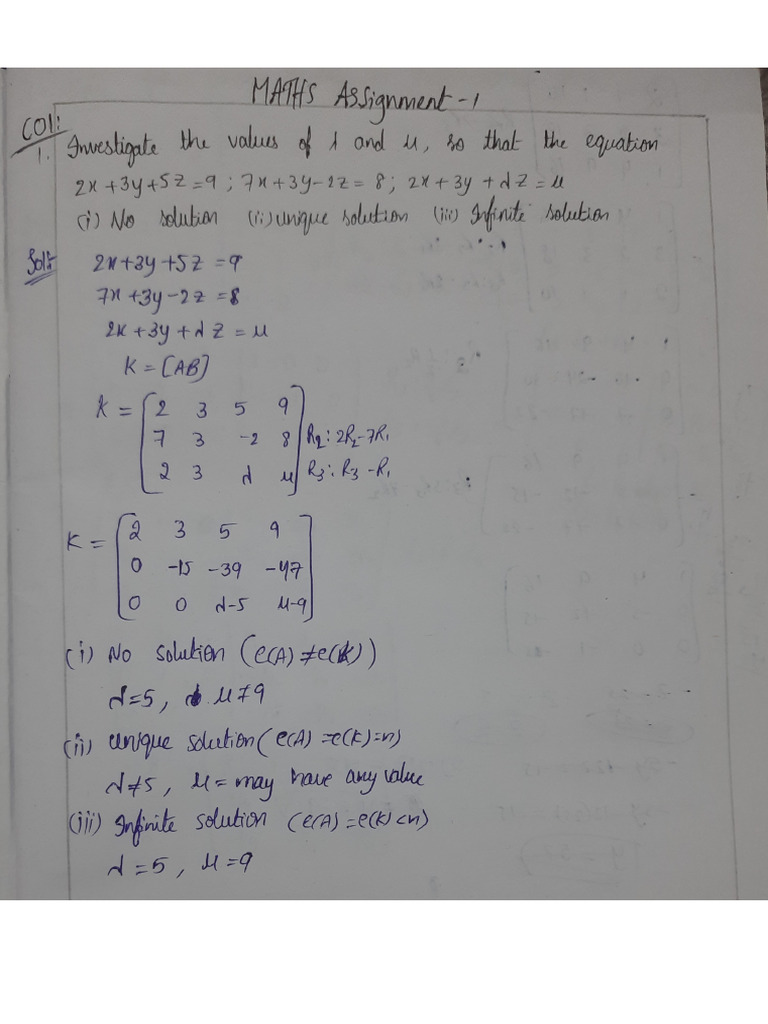 MATHS Assignment-1
CO1:
1. Investigate the values of λ and μ, so that the equation
2x+3y+5z=9; 7x+3y-2z=8; 2x+3y+λz=μ
(i) No solution (ii) unique solution (iii) Infinite solution
Sol:- 2x+3y+5z=9
7x+3y-2z=8
2x+3y+λz=μ
K=[AB]
K= [2 3 5 9
7 3 -2 8 R₂: 2R₂-7R₁
2 3 λ μ] R₃: R₃-R₁
K= [2 3 5 9
0 -15 -39 -47
0 0 λ-5 μ-9]
(i) No solution (e(A)≠e(K))
λ=5, μ≠9
(ii) unique solution (e(A)=e(K)=n)
λ≠5, μ=may have any value
(iii) Infinite solution (e(A)=e(K)<n)
λ=5, μ=9